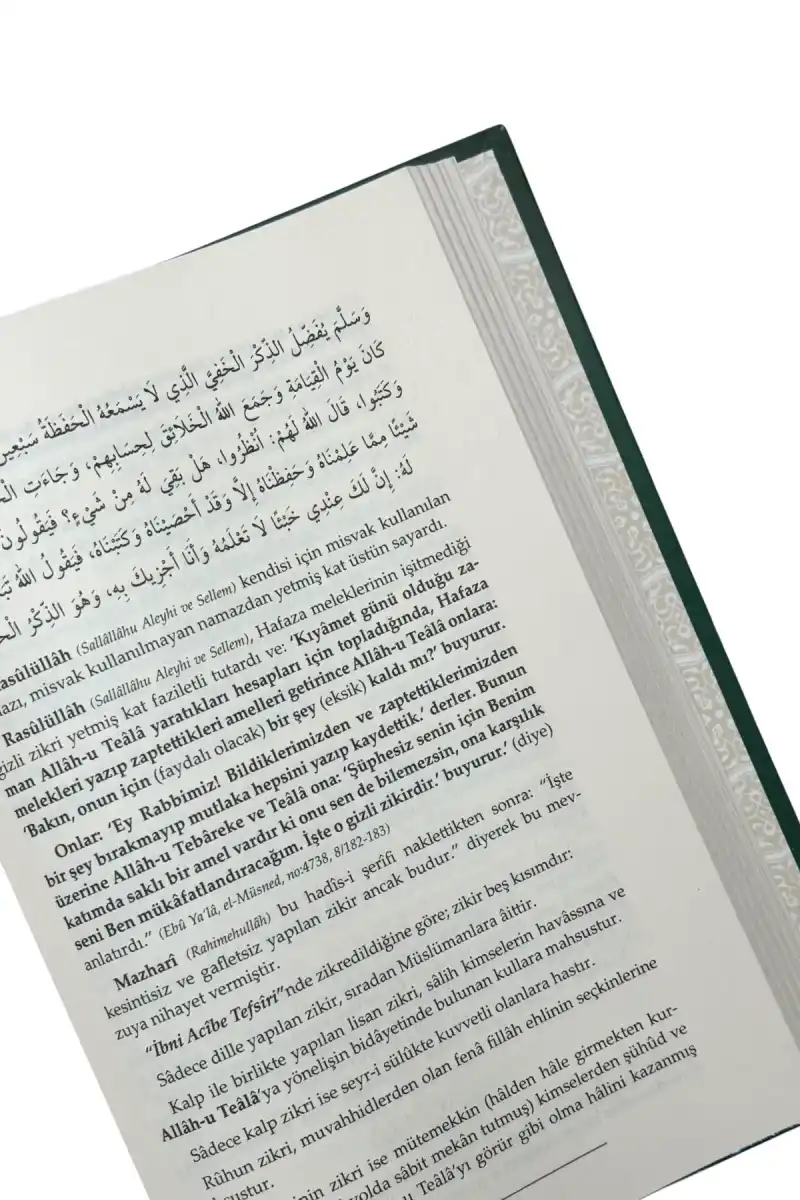 وَسَلَّمَ يُفَضِّلُ الذِّكْرَ الْخَفِيَّ الَّذِي لَا يَسْمَعُهُ الْحَفَظَةُ سَبْعِينَ
كَانَ يَوْمُ الْقِيَامَةِ وَجَمَعَ اللهُ الْخَلَائِقَ لِحِسَابِهِمْ، وَجَاءَتِ
وَكَتَبُوا، قَالَ اللهُ لَهُمْ: اُنْظُرُوا، هَلْ بَقِيَ لَهُ مِنْ شَيْءٍ؟ فَيَقُولُونَ
شَيْئًا مِمَّا عَلِمْنَاهُ وَحَفِظْنَاهُ إِلَّا وَقَدْ أَحْصَيْنَاهُ وَكَتَبْنَاهُ، فَيَقُولُ اللهُ
لَهُ: إِنَّ لَكَ عِنْدِي خَبْئًا لَا تَعْلَمُهُ وَأَنَا أَجْزِيكَ بِهِ، وَهُوَ الذِّكْرُ
asûlüllâh (Sallâllâhu Aleyhi ve Sellem) kendisi için misvak kullanılan
azı, misvak kullanılmayan namazdan yetmiş kat üstün sayardı.
Rasûlüllâh (Sallâllâhu Aleyhi ve Sellem), Hafaza meleklerinin işitmediği
gizli zikri yetmiş kat faziletli tutardı ve: 'Kıyâmet günü olduğu za-
man Allâh-u Teâlâ yaratıkları hesapları için topladığında, Hafaza
melekleri yazıp zaptettikleri amelleri getirince Allâh-u Teâlâ onlara:
'Bakın, onun için (faydalı olacak) bir şey (eksik) kaldı mı?' buyurur.
Onlar: 'Ey Rabbimiz! Bildiklerimizden ve zaptettiklerimizden
bir şey bırakmayıp mutlaka hepsini yazıp kaydettik.' derler. Bunun
üzerine Allâh-u Tebâreke ve Teâlâ ona: 'Şüphesiz senin için Benim
katımda saklı bir amel vardır ki onu sen de bilemezsin, ona karşılık
seni Ben mükâfatlandıracağım. İşte o gizli zikirdir.' buyurur.' (diye)
anlatırdı." (Ebû Ya'lâ, el-Müsned, no:4738, 8/182-183)
Mazharî (Rahimehullâh) bu hadîs-i şerîfi naklettikten sonra: "İşte
kesintisiz ve gafletsiz yapılan zikir ancak budur." diyerek bu mev-
zuya nihayet vermiştir.
"İbni Acîbe Tefsîri"nde zikredildiğine göre; zikir beş kısımdır:
Sâdece dille yapılan zikir, sıradan Müslümanlara âittir.
Kalp ile birlikte yapılan lisan zikri, sâlih kimselerin havâssına ve
Allâh-u Teâlâ'ya yönelişin bidâyetinde bulunan kullara mahsustur.
Sâdece kalp zikri ise seyr-i sülûkte kuvvetli olanlara hastır.
Rûhun zikri, muvahhidlerden olan fenâ fillâh ehlinin seçkinlerine
sustur.
nin zikri ise mütemekkin (hâlden hâle girmekten kur-
yolda sâbit mekân tutmuş) kimselerden şühûd ve
u Teâlâ'yı görür gibi olma hâlini kazanmış